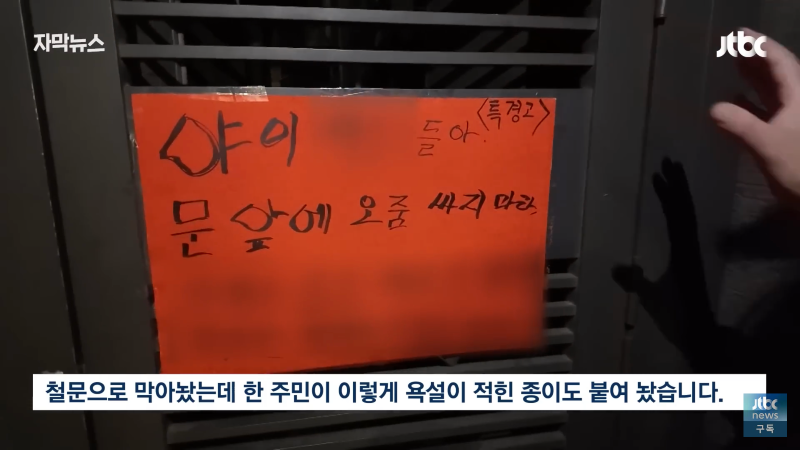 자막뉴스
jtbc
<특경고>
야이 들아.
문 앞에 오줌 싸지 마라
철문으로 막아놨는데 한 주민이 이렇게 욕설이 적힌 종이도 붙여 놨습니다.
jtbc
news
구독